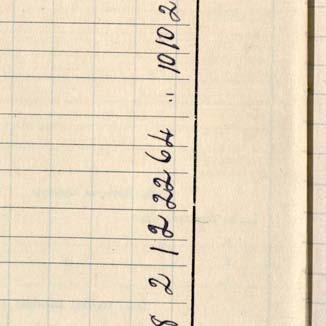 8 2 1 2 22 6 4 " 10 10 2